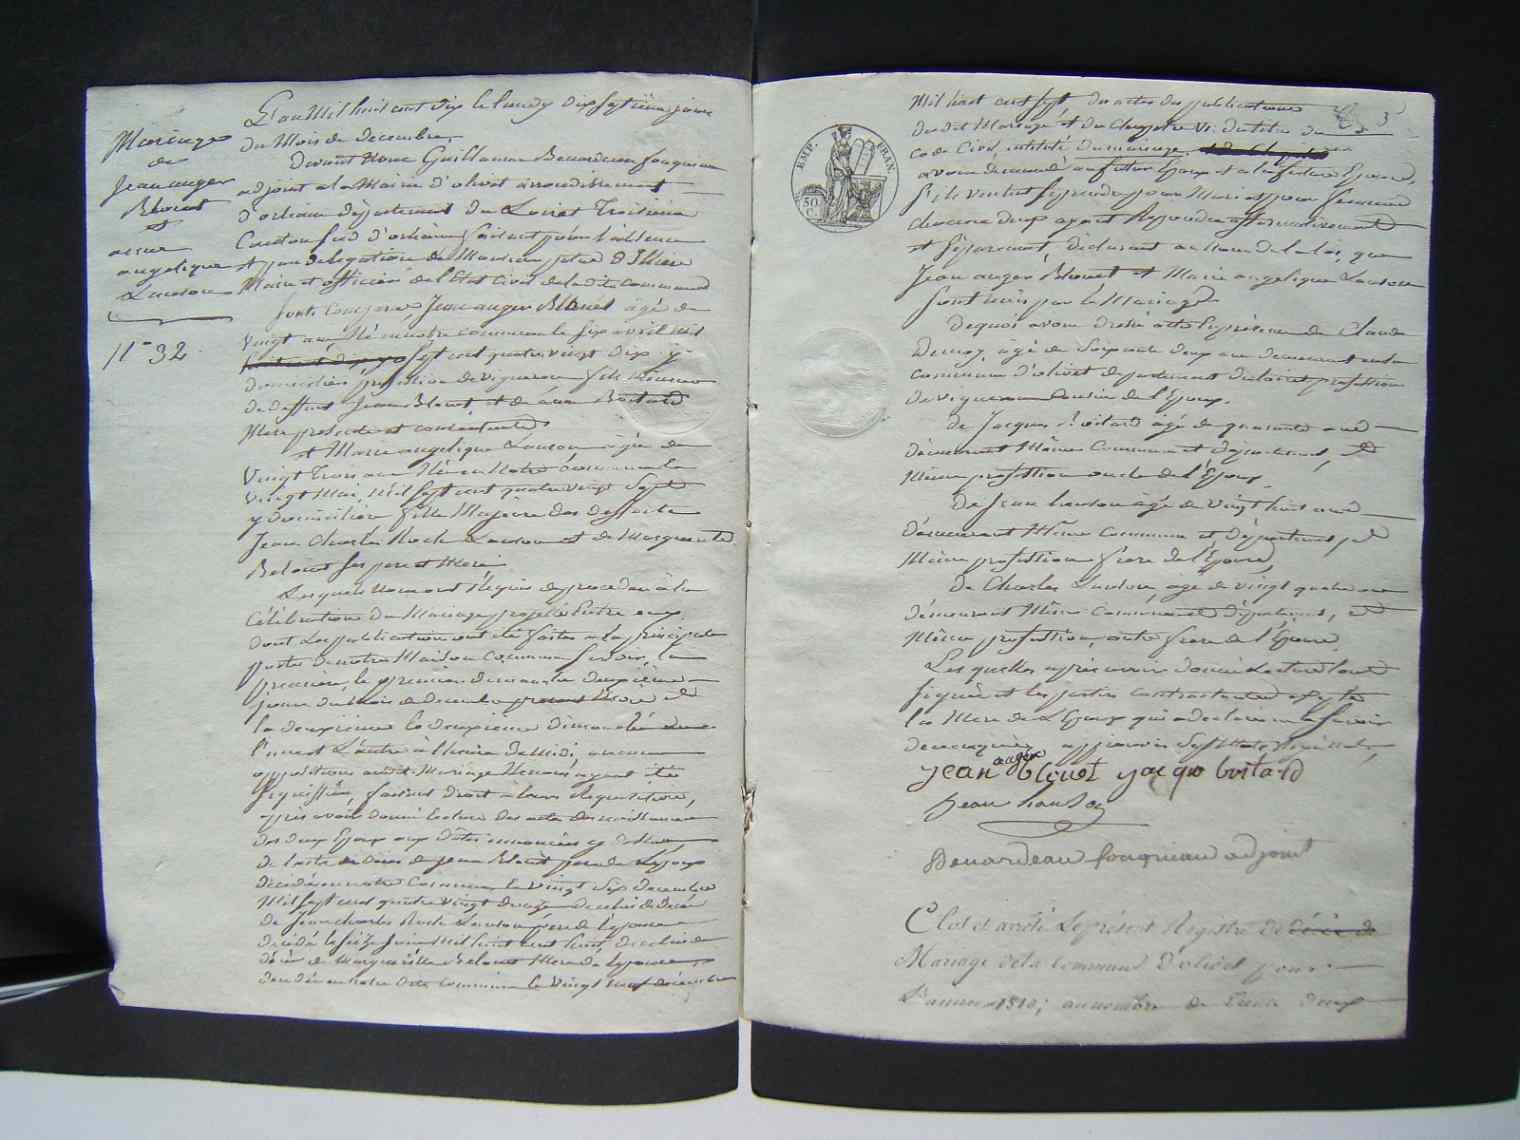 Mariage
de
Jean auger
Blouet
et
angelique
Lanson
N° 32
L'an Mil huit cent dix le lundy dix septième jour
du Mois de decembre,
Devant Nous Guillaume Benardeau fouqueau
adjoint a la Mairie d'olivet arrondissement
d'orleans département du Loiret Troisième
Canton Sud d'orléans faisant pour l'absence
et par delegation de Monsieur
Maire et officier de l'Etat Civil de ladite commune
sont Comparus Jean auger Blouet âgé de
Vingt ans Né en notre commune le six avril mil
sept cent quatre vingt dix y
domicilié, profession de vigneron fils Mineur
de deffunt Jean Blouet, et de anne Boitard
Mere presente et consentante
et Marie angelique Lanson agée de
Vingt Trois ans Née en Notre Commune le
Vingt Mai Mil sept cent quatre vingt sept
y domiciliée fille Majeure des deffunts
Jean Charles Roch Lanson et de Marguerite
Belouet ses pere et Mere
Lesquels Nous ont Requis de proceder à la
Célébration du Mariage projetté Entre eux
dont Les publications ont été faites a la principale
porte de notre Maison Commune Savoir, la
premiere, le premier dimanche deuxième
jour du Mois de decembre present Mois et
la deuxieme le deuxieme dimanche
l'un et L'autre à l'heure de Midi, aucune
opposition audit Mariage Ne nous ayant été
signifiée, faisant droit a leur Requisition,
après avoir donné lecture des actes de naissance
des deux Epoux aux dates enoncées cy dessus,
de l'acte de décès de Jean Blouet pere de l'Epoux
décédé en notre Commune le vingt six decembre
Mil sept cent quatre vingt de celui de décès
de Jean Charles Roch Lanson pere de l'epouse
décédé le seize Juin Mil huit cent huit de celui de
décès de Marguerite Belouet Mere de l'epouse
décédée en notre dite commune le vingt neuf décembre
3
EMP. FRAN.
50 C.
Mil huit cent sept, des actes des publications
dudit Mariage et du Chapitre VI du titre du
code Civil, intitulé du mariage
avons demandé au futur Epoux et a la future Epouse,
S'ils veulent se prendre pour Mari et pour femme
chacun deux ayant Repondu affirmativement
et séparement, déclarons au nom de la loi, que
Jean auger Blouet et Marie angelique Lanson
sont unis par le Mariage
De quoi avons dressé acte En présence de Claude
âgé de soixante deux ans demeurant en la
Commune d'olivet departement du loiret profession
de vigneron Cousin de l'Epoux,
de Jacques Boitard âgé de quarante ans
démeurant Même Commune et département, et
Même profession oncle de l'Epoux,
De Jean Lanson âgé de vingt huit ans
démeurant Même Commune et département, et
Même profession frere de l'Epouse,
de Charles Lanson, agé de vingt quatre ans
démeurant Même Commune et département, et
Même profession, autre frere de l'Epouse,
Lesquels après avoir donné Lecture l'ont
signé et les parties contractantes excepté
la Mere de L'Epoux qui a declaré ne le savoir
de ce enquis,
jean auger blouet jacque boitard
Jean Lanson
Benardeau fouqueau adjoint
Clos et arrêté Le présent Registre de
Mariage de la Commune d'olivet pour
L'année 1810, au nombre de Trente deux